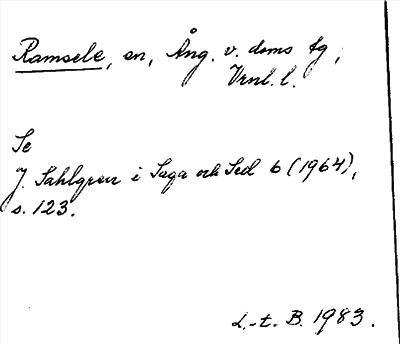 Ramsele, sn, Ång. v. doms tg,
Vrnl. l.
Se
J. Sahlgren i Saga och Sed 6 (1964),
s. 123.
L.-t. B. 1983.